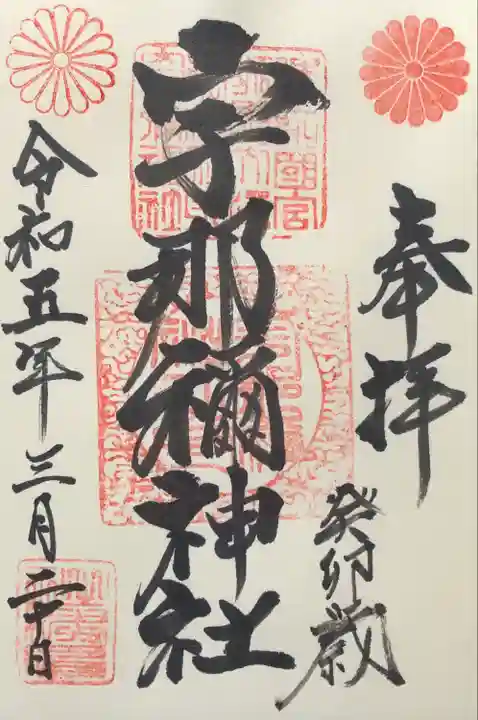 奉拝
癸卯歳
宇那禰神社
令和五年三月二十日